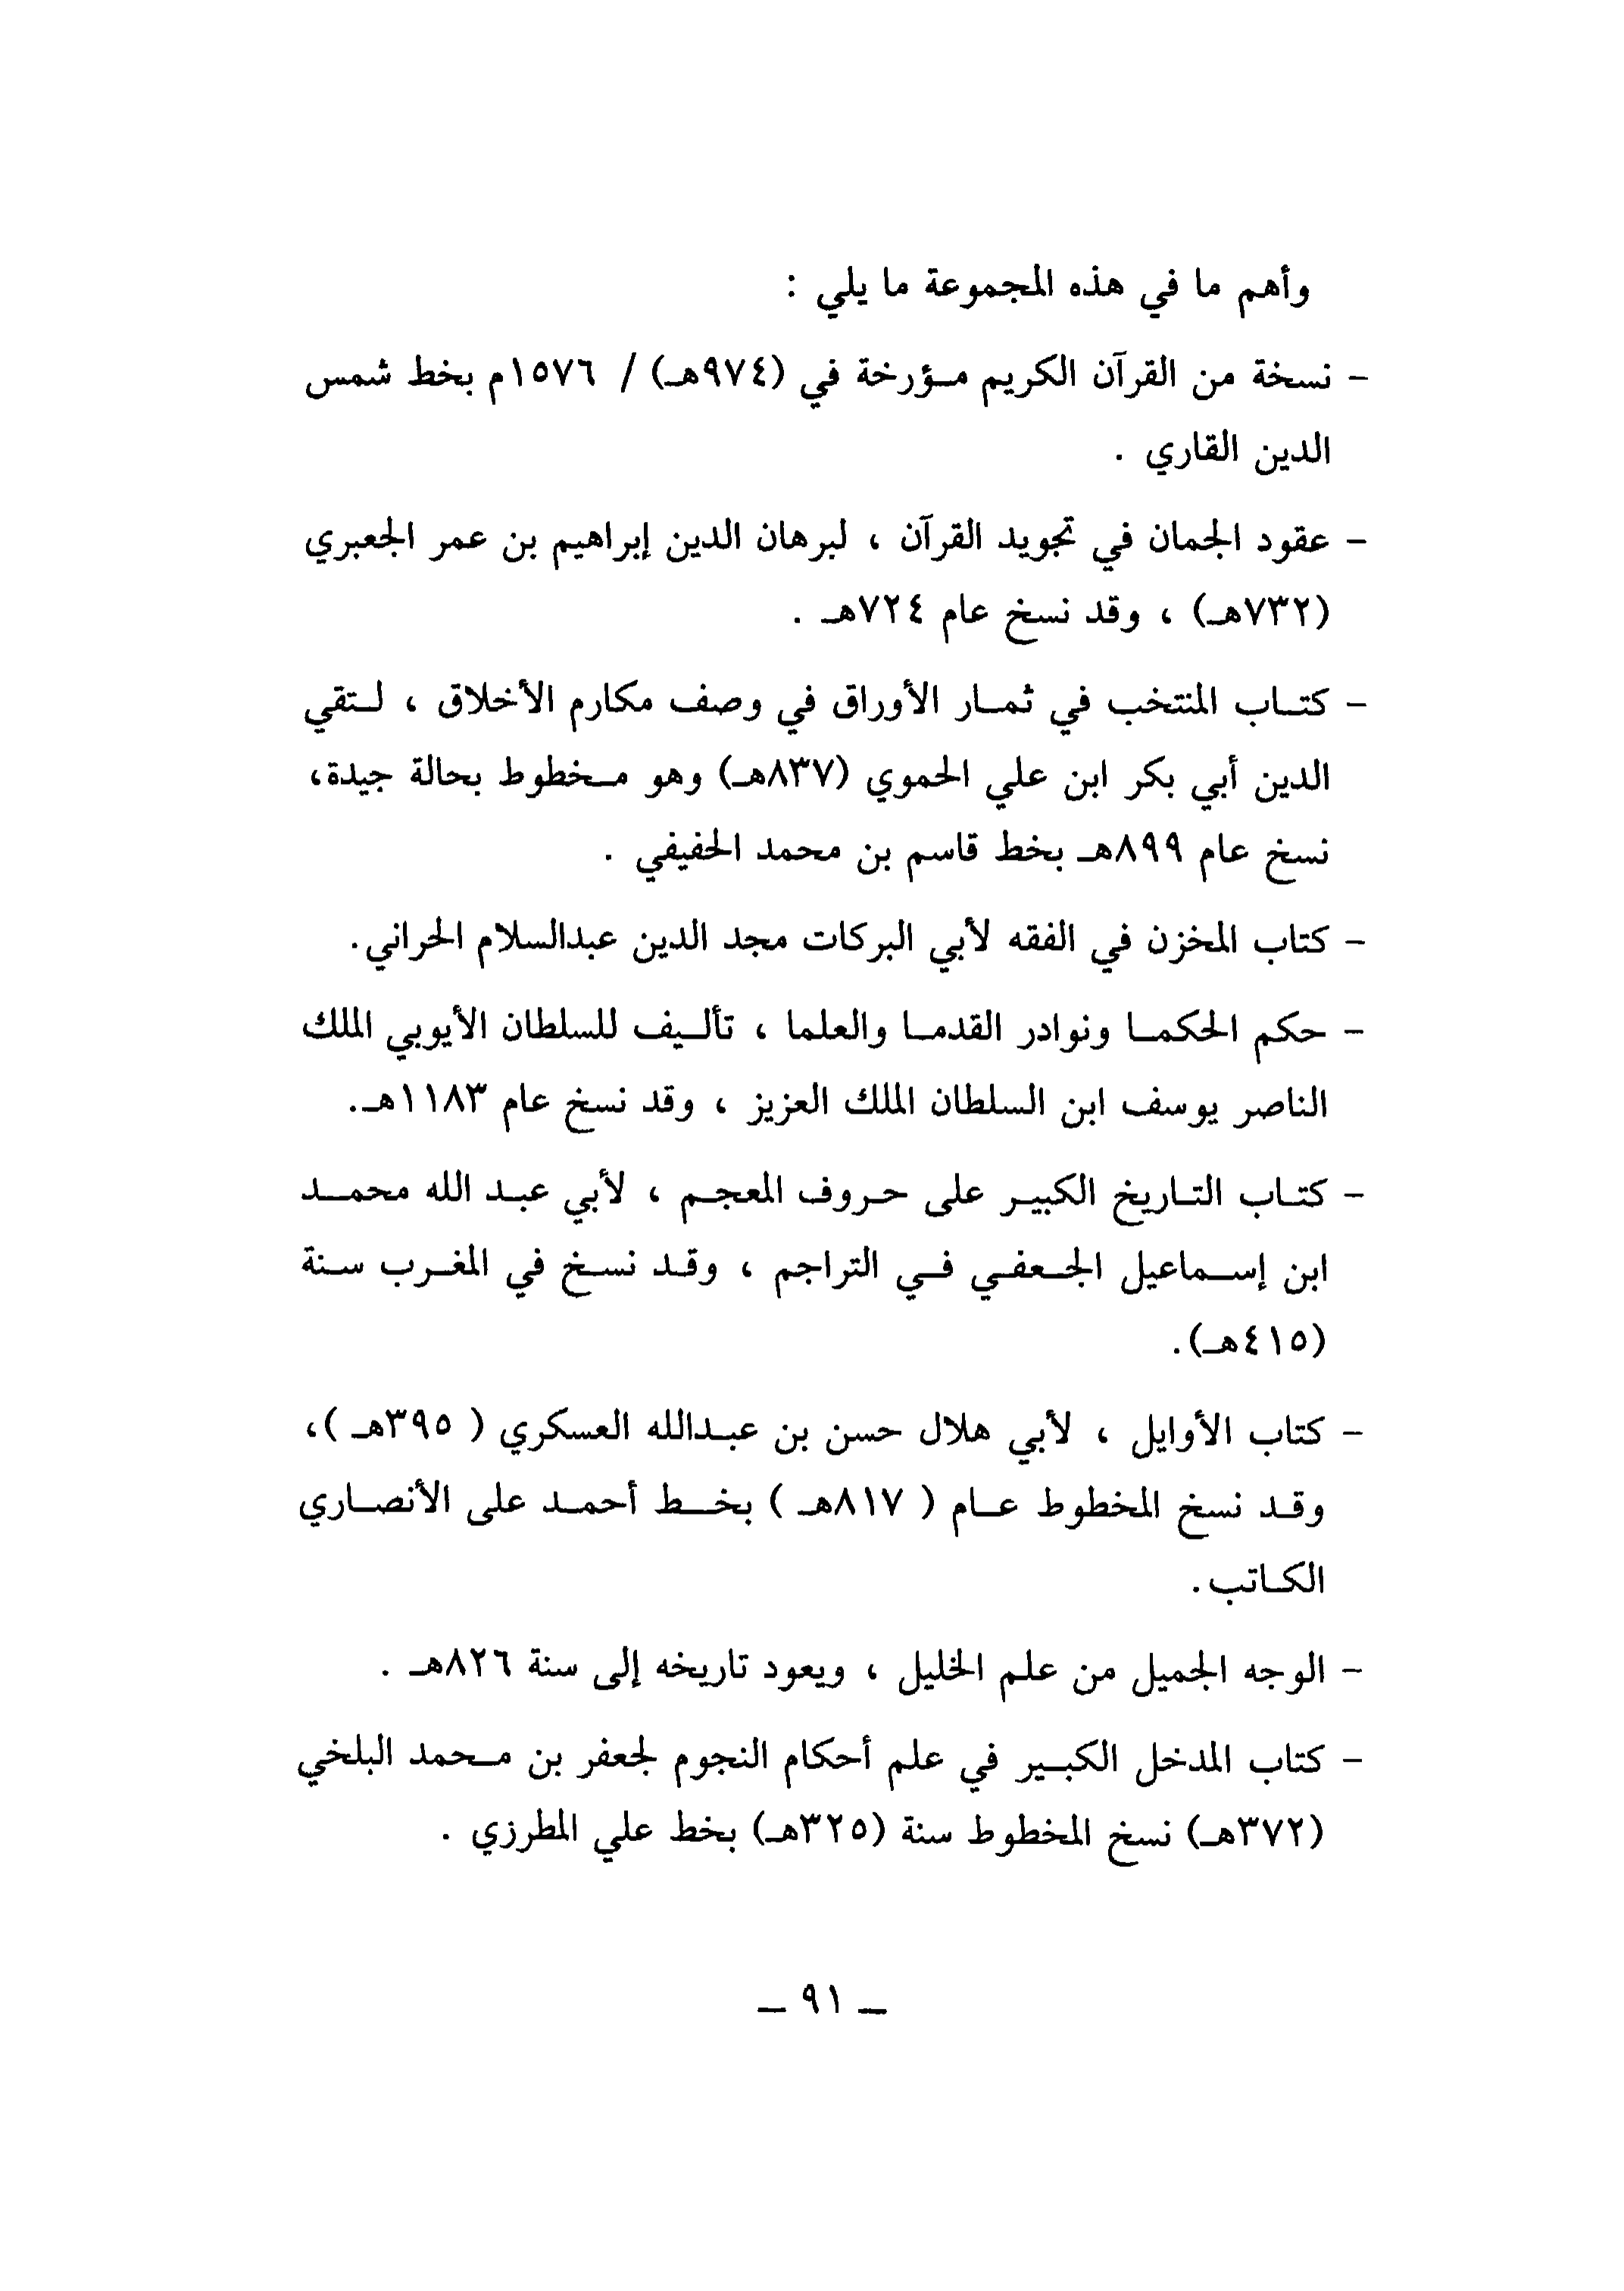 وأهم ما في هذه المجموعة ما يلي :
- نسخة من القرآن الكريم مؤرخة في (٩٧٤هـ) / ١٥٧٦م بخط شمس
الدين القاري .
- عقود الجمان في تجويد القرآن ، لبرهان الدين إبراهيم بن عمر الجعبري
(٧٣٢هـ) ، وقد نسخ عام ٧٢٤هـ .
- كتاب المنتخب في ثمار الأوراق في وصف مكارم الأخلاق ، لتقي
الدين أبي بكر ابن علي الحموي (٨٣٧هـ) وهو مخطوط بحالة جيدة،
نسخ عام ٨٩٩هـ بخط قاسم بن محمد الحفيفي .
- كتاب المخزن في الفقه لأبي البركات مجد الدين عبدالسلام الحراني.
- حكم الحكما ونوادر القدما والعلما ، تأليف للسلطان الأيوبي الملك
الناصر يوسف ابن السلطان الملك العزيز ، وقد نسخ عام ١١٨٣هـ.
- كتاب التاريخ الكبير على حروف المعجم ، لأبي عبد الله محمد
ابن إسماعيل الجعفي في التراجم ، وقد نسخ في المغرب سنة
(٤١٥هـ).
- كتاب الأوايل ، لأبي هلال حسن بن عبدالله العسكري ( ٣٩٥هـ )،
وقد نسخ المخطوط عام ( ٨١٧هـ ) بخط أحمد على الأنصاري
الكاتب.
- الوجه الجميل من علم الخليل ، ويعود تاريخه إلى سنة ٨٢٦هـ .
- كتاب المدخل الكبير في علم أحكام النجوم لجعفر بن محمد البلخي
(٣٧٢هـ) نسخ المخطوط سنة (٣٢٥هـ) بخط علي المطرزي .
_ ٩١ _